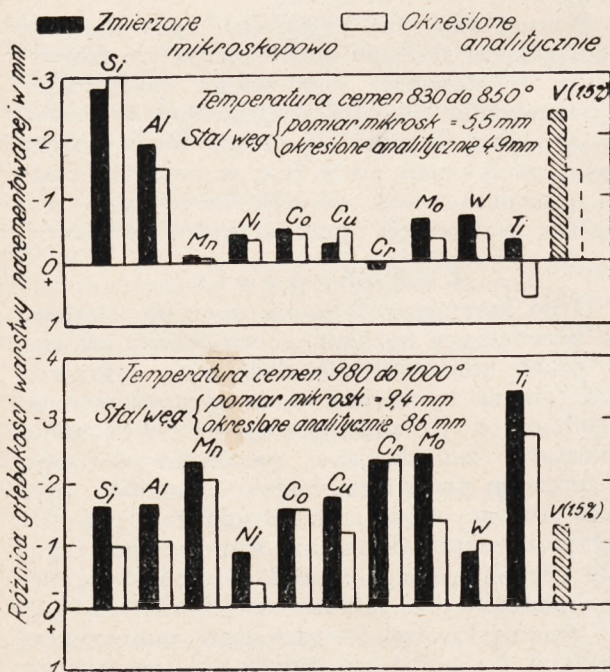 Zmierzone mikroskopowo
Określone analitycznie
Różnica głębokości warstwy nacementowanej w mm
-3
-2
-1
0
+
1
Temperatura cemen 830 do 850°
Stal węg { pomiar mikrosk = 5,5 mm
określone analitycznie 4,9mm
Si
Al
Mn
Ni
Co
Cu
Cr
Mo
W
Ti
V(1.5%)
-4
-3
-2
-1
-
0
+
1
Temperatura cemen. 980 do 1000°
Stal węg { pomiar mikrosk = 9,4 mm
określone analitycznie 8,6 mm
Si
Al
Mn
Ni
Co
Cu
Cr
Mo
W
Ti
V(1.5%)